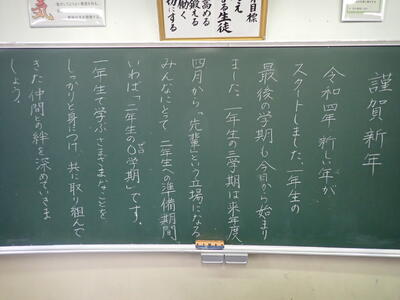 謹賀新年
令和四年、新しい年が
スタートしました。一年生の
最後の学期も今日から始まり
ました。一年生の三学期は来年度
四月から「先輩」という立場になる
みんなにとって二年生への準備期間
いわば「二年生の0学期」です。
ゼロ
一年生で学ぶさまざまなことを
しっかりと身につけ、共に取り組んで
きた仲間との絆を深めていきま
しょう。
目標
える生徒
高める
鍛える
働く
切にする